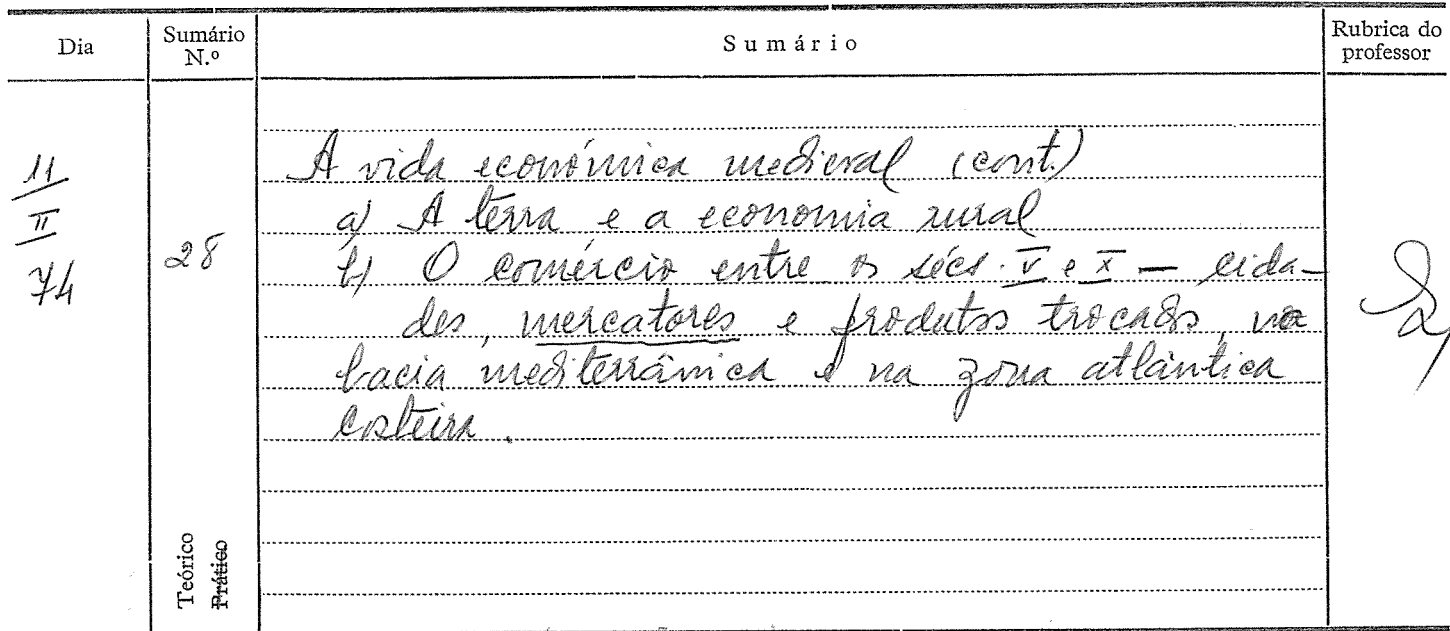 Dia
Sumário N.º
Sumário
Rubrica do professor
11
II
74
28
A vida económica medieval (cont.)
a) A terra e a economia rural
b) O comércio entre os sécs. V e X — cida-
des, mercatores e produtos trocados, na
bacia mediterrânica e na zona atlântica
costeira.
Teórico
Prático